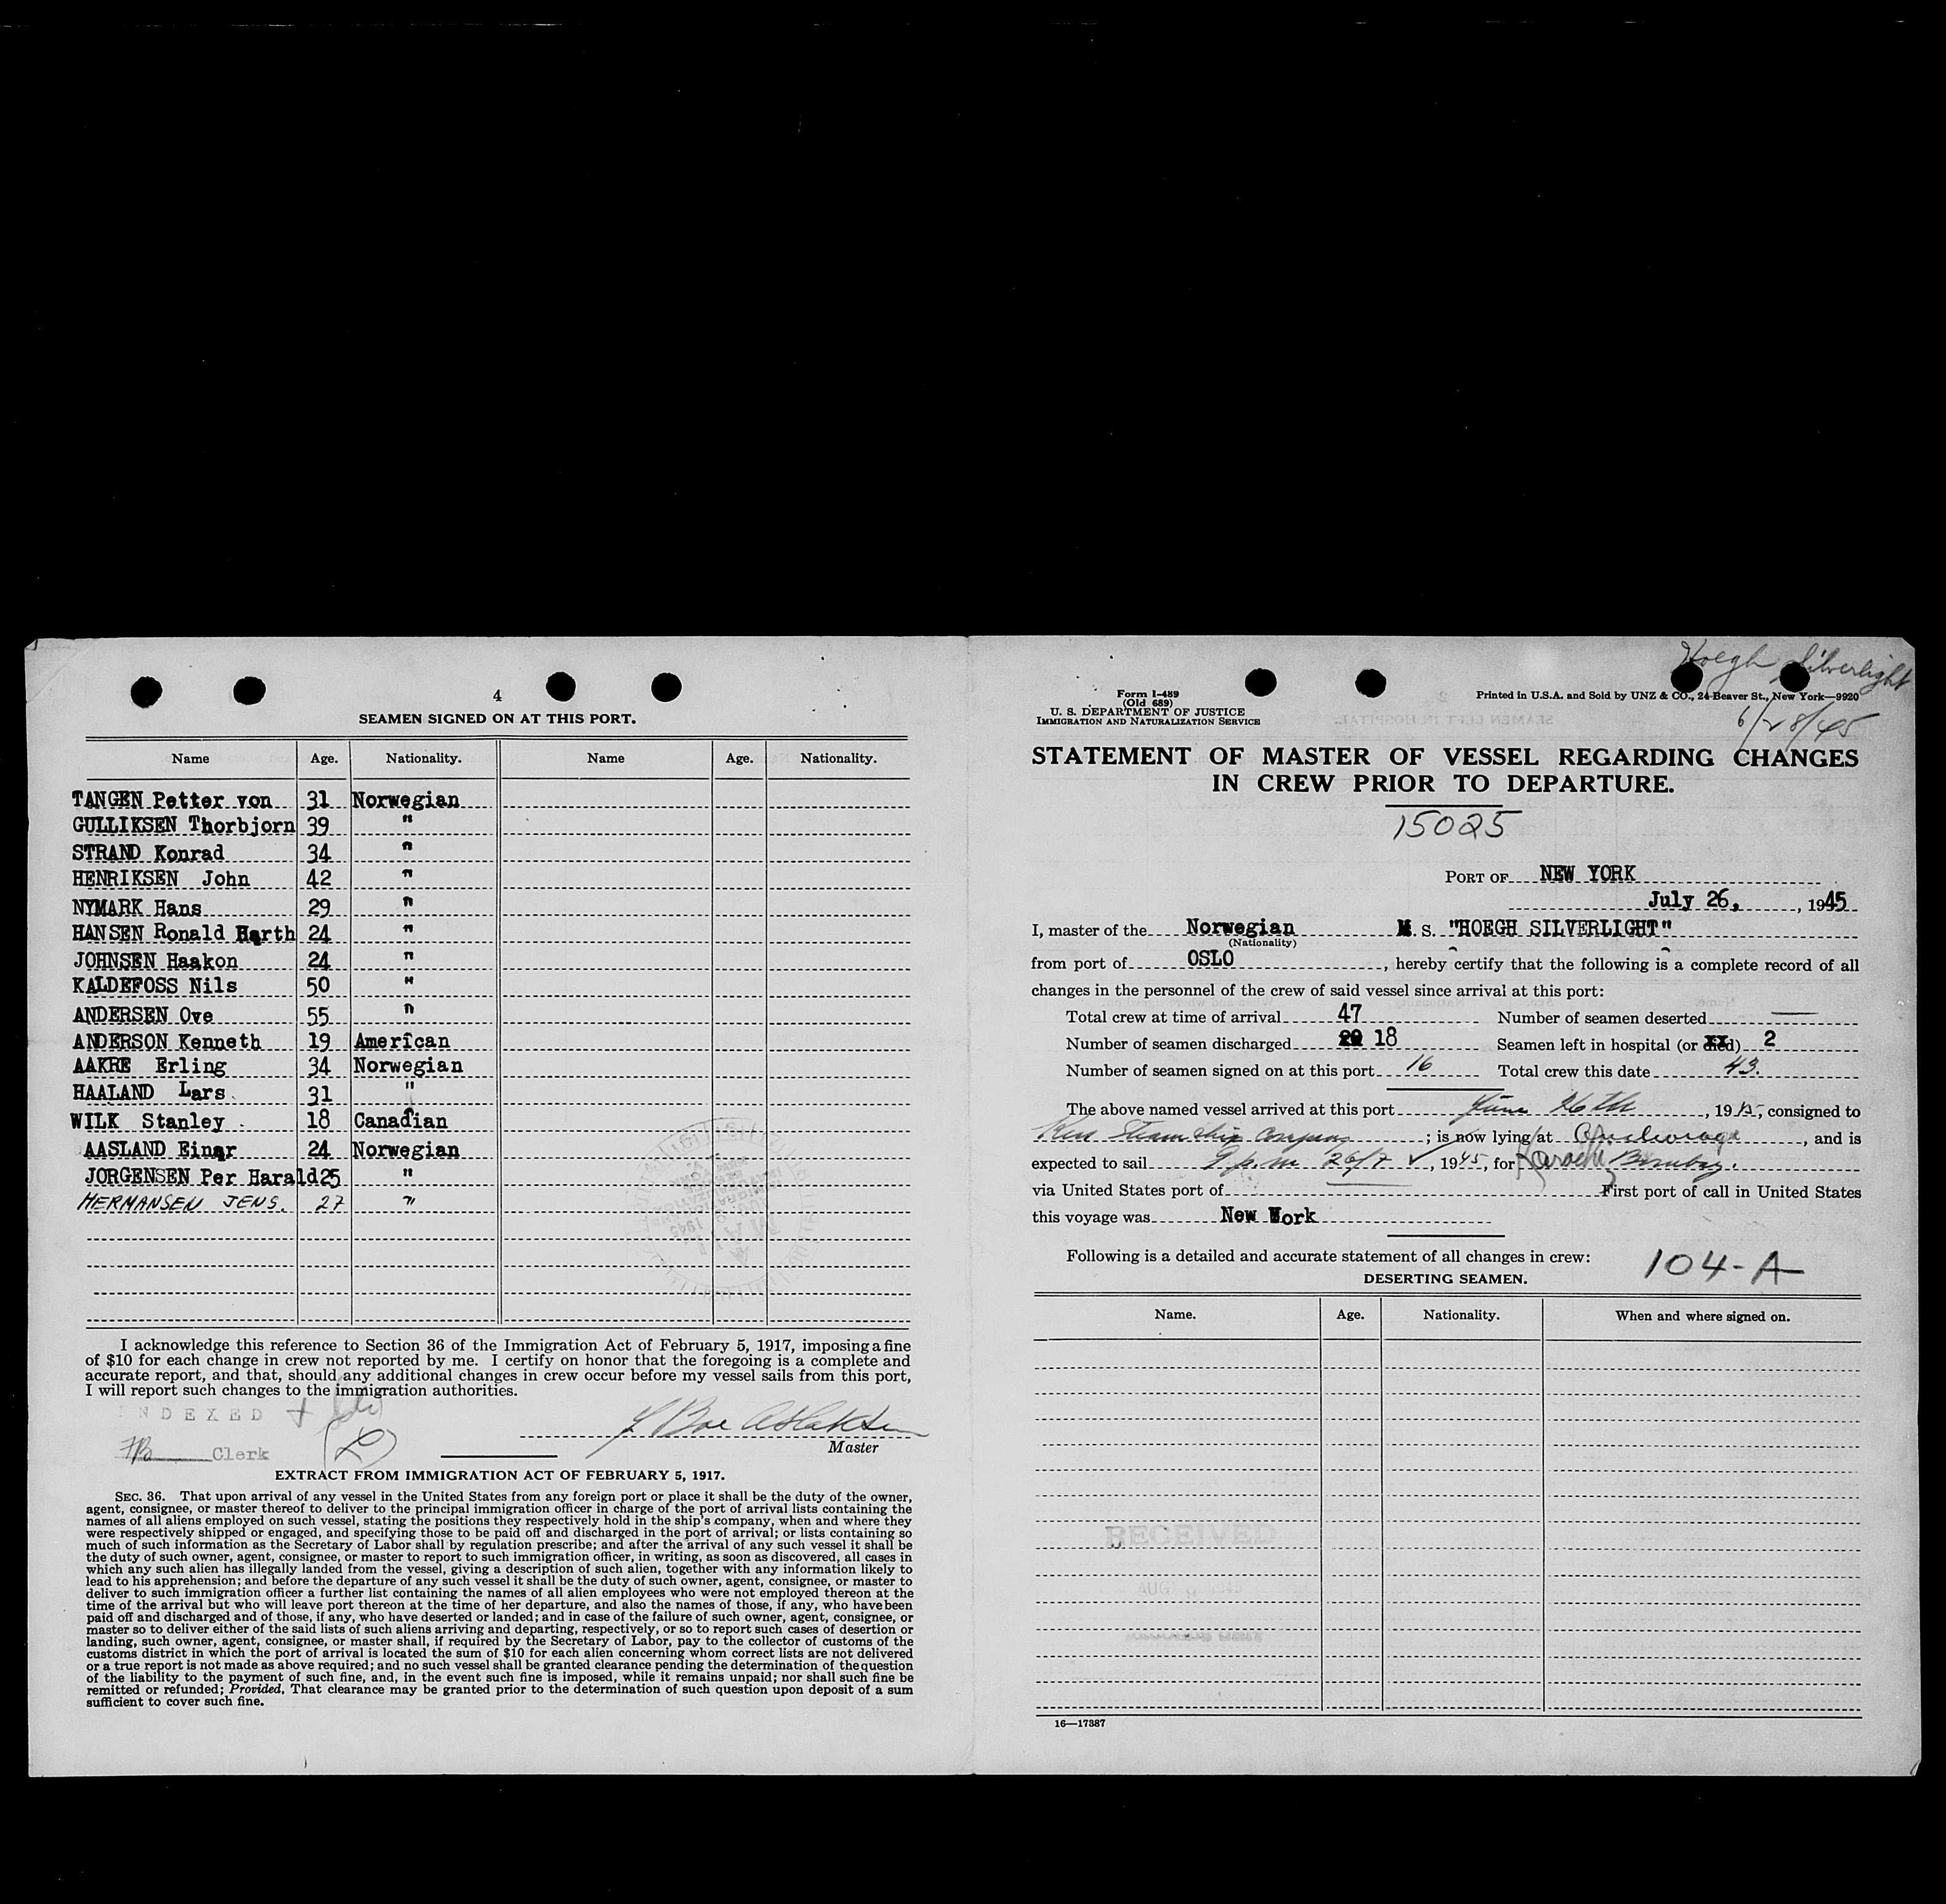 4
SEAMEN SIGNED ON AT THIS PORT.
Name Age. Nationality. Name Age. Nationality.
TANGEN Petter von 31 Norwegian
GULLIKSEN Thorbjorn 39 "
STRAND Konrad 34 "
HENRIKSEN John 42 "
NYMARK Hans 29 "
HANSEN Ronald Harth 24 "
JOHNSEN Haakon 24 "
KALDEFOSS Nils 50 "
ANDERSEN Ove 55 "
ANDERSON Kenneth 19 American
AAKRE Erling 34 Norwegian
HAALAND Lars 31 "
WILK Stanley 18 Canadian
AASLAND Einar 24 Norwegian
JORGENSEN Per Harald 25 "
HERMANSEN JENS. 27 "
I acknowledge this reference to Section 36 of the Immigration Act of February 5, 1917, imposing a fine
of $10 for each change in crew not reported by me. I certify on honor that the foregoing is a complete and
accurate report, and that, should any additional changes in crew occur before my vessel sails from this port,
I will report such changes to the immigration authorities.
INDEXED
Clerk
Master
EXTRACT FROM IMMIGRATION ACT OF FEBRUARY 5, 1917.
SEC. 36. That upon arrival of any vessel in the United States from any foreign port or place it shall be the duty of the owner,
agent, consignee, or master thereof to deliver to the principal immigration officer in charge of the port of arrival lists containing the
names of all aliens employed on such vessel, stating the positions they respectively hold in the ship's company, when and where they
were respectively shipped or engaged, and specifying those to be paid off and discharged in the port of arrival; or lists containing so
much of such information as the Secretary of Labor shall by regulation prescribe; and after the arrival of any such vessel it shall be
the duty of such owner, agent, consignee, or master to report to such immigration officer, in writing, as soon as discovered, all cases in
which any such alien has illegally landed from the vessel, giving a description of such alien, together with any information likely to
lead to his apprehension; and before the departure of any such vessel it shall be the duty of such owner, agent, consignee, or master to
deliver to such immigration officer a further list containing the names of all alien employees who were not employed thereon at the
time of the arrival but who will leave port thereon at the time of her departure, and also the names of those, if any, who have been
paid off and discharged and of those, if any, who have deserted or landed; and in case of the failure of such owner, agent, consignee, or
master so to deliver either of the said lists of such aliens arriving and departing, respectively, or so to report such cases of desertion or
landing, such owner, agent, consignee, or master shall, if required by the Secretary of Labor, pay to the collector of customs of the
customs district in which the port of arrival is located the sum of $10 for each alien concerning whom correct lists are not delivered
or a true report is not made as above required; and no such vessel shall be granted clearance pending the determination of the question
of the liability to the payment of such fine, and, in the event such fine is imposed, while it remains unpaid; nor shall such fine be
remitted or refunded; Provided, That clearance may be granted prior to the determination of such question upon deposit of a sum
sufficient to cover such fine.
Hoegh Silverlight
Form I-489
(Old 689)
U. S. DEPARTMENT OF JUSTICE
IMMIGRATION AND NATURALIZATION SERVICE
Printed in U.S.A. and Sold by UNZ & CO., 24 Beaver St., New York—9920
6/28/45
STATEMENT OF MASTER OF VESSEL REGARDING CHANGES
IN CREW PRIOR TO DEPARTURE.
15025
PORT OF NEW YORK
July 26, , 1945
I, master of the Norwegian M. S. "HOEGH SILVERLIGHT"
(Nationality)
from port of OSLO , hereby certify that the following is a complete record of all
changes in the personnel of the crew of said vessel since arrival at this port:
Total crew at time of arrival 47 Number of seamen deserted —
Number of seamen discharged 18 Seamen left in hospital (or died) 2
Number of seamen signed on at this port 16 Total crew this date 43.
The above named vessel arrived at this port June 26th , 1945, consigned to
Kerr Steamship Company ; is now lying at Anchorage , and is
expected to sail 9 p.m. 26/7 , 1945, for Karachi Bombay.
via United States port of First port of call in United States
this voyage was New York
Following is a detailed and accurate statement of all changes in crew:
104-A
DESERTING SEAMEN.
Name. Age. Nationality. When and where signed on.
RECEIVED
AUG 9 1945
16—17387